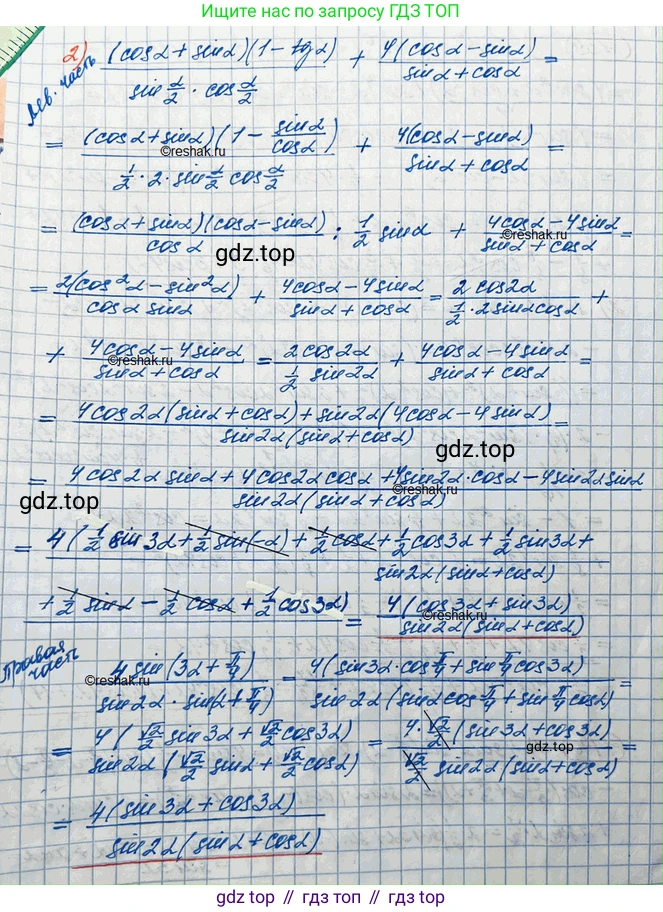 Ищите нас по запросу ГДЗ ТОП
2) Лев. часть (cosα + sinα)(1 - tgα) / (sin α/2 · cos α/2) + 4(cosα - sinα) / (sinα + cosα) =
= (cosα + sinα)(1 - sinα/cosα) / (1/2 · 2 · sin α/2 cos α/2) + 4(cosα - sinα) / (sinα + cosα) =
©reshak.ru
= (cosα + sinα)(cosα - sinα) / cosα : 1/2 sinα + (4cosα - 4sinα) / (sinα + cosα) =
gdz.top
©reshak.ru
= 2(cos²α - sin²α) / (cosα sinα) + (4cosα - 4sinα) / (sinα + cosα) = 2cos2α / (1/2 · 2sinαcosα) +
+ (4cosα - 4sinα) / (sinα + cosα) = 2cos2α / (1/2 sin2α) + (4cosα - 4sinα) / (sinα + cosα) =
©reshak.ru
= (4cos2α(sinα + cosα) + sin2α(4cosα - 4sinα)) / (sin2α(sinα + cosα)) =
gdz.top
= (4cos2α sinα + 4cos2α cosα + 4sin2α · cosα - 4sin2α sinα) / (sin2α(sinα + cosα))
©reshak.ru
gdz.top
= 4(1/2 sin3α + 1/2 sin(-α) + 1/2 cosα + 1/2 cos3α + 1/2 sin3α + / sin2α(sinα + cosα)
+ 1/2 sinα - 1/2 cosα + 1/2 cos3α) = 4(cos3α + sin3α) / (sin2α(sinα + cosα))
©reshak.ru
Правая часть 4sin(3α + π/4) / (sin2α · sin(α + π/4)) = 4(sin3α · cos π/4 + sin π/4 cos3α) / (sin2α(sinα cos π/4 + sin π/4 cosα)) =
©reshak.ru
= 4(√2/2 sin3α + √2/2 cos3α) / (sin2α(√2/2 sinα + √2/2 cosα)) = 4 · √2/2 (sin3α + cos3α) / (√2/2 sin2α(sinα + cosα)) =
©reshak.ru
= 4(sin3α + cos3α) / (sin2α(sinα + cosα))
gdz.top // гдз.топ // гдз.top